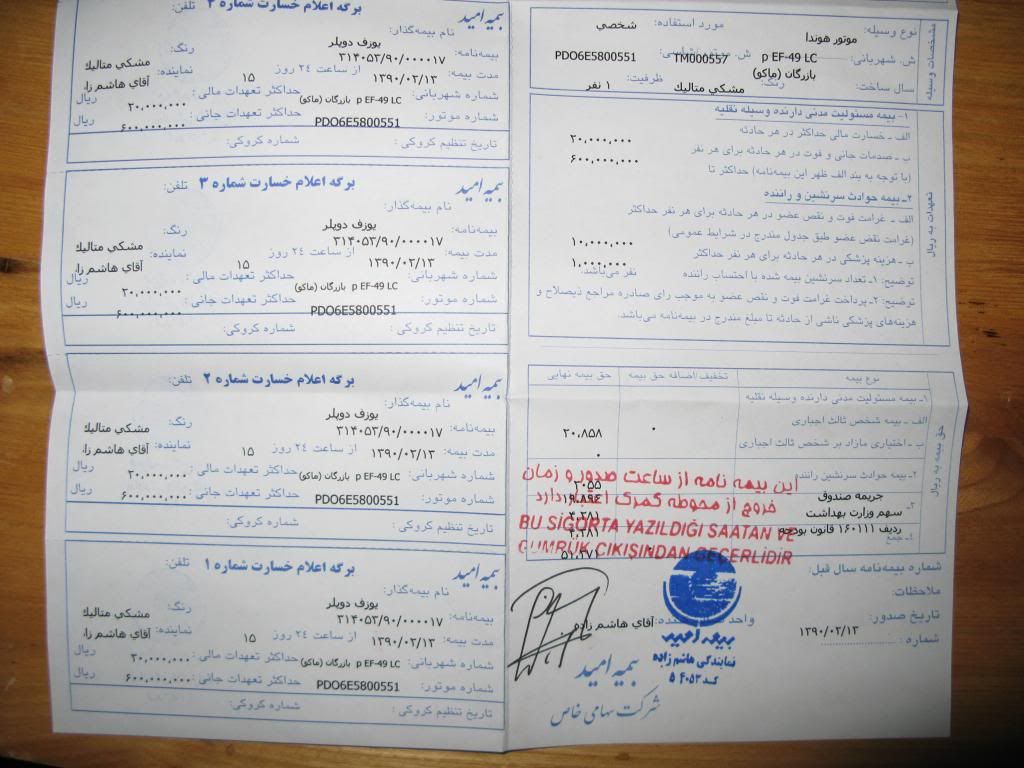 مشخصات وسیله
نوع وسیله: موتور هوندا مورد استفاده: شخصي
ش. شهربانی: p EF-49 LC بازرگان (ماکو) ش. موتور/شاسی: TM000557 PDO6E5800551
سال ساخت: رنگ: مشکي متالیك ظرفیت: ۱ نفر
تعهدات به ریال
۱- بیمه مسئولیت مدنی دارنده وسیله نقلیه
الف ـ خسارت مالی حداکثر در هر حادثه ۲۰,۰۰۰,۰۰۰
ب ـ صدمات جانی و فوت در هر حادثه برای هر نفر ۶۰۰,۰۰۰,۰۰۰
(با توجه به بند الف ظهر این بیمه‌نامه) حداکثر تا
۲ـ بیمه حوادث سرنشین و راننده
الف ـ غرامت فوت و نقص عضو در هر حادثه برای هر نفر حداکثر
(غرامت نقص عضو طبق جدول مندرج در شرایط عمومی) ۱۰,۰۰۰,۰۰۰
ب ـ هزینه پزشکی در هر حادثه برای هر نفر حداکثر ۱,۰۰۰,۰۰۰
توضیح: ۱ـ تعداد سرنشین بیمه شده با احتساب راننده نفر می‌باشد.
توضیح: ۲ـ پرداخت غرامت فوت و نقص عضو به موجب رای صادره مراجع ذیصلاح و
هزینه‌های پزشکی ناشی از حادثه تا مبلغ مندرج در بیمه‌نامه می‌باشد.
حق بیمه به ریال
نوع بیمه تخفیف/اضافه حق بیمه حق بیمه نهایی
۱ـ بیمه مسئولیت مدنی دارنده وسیله نقلیه
الف ـ بیمه شخص ثالث اجباری ۰ ۲۰,۸۵۸
ب ـ اختیاری مازاد بر شخص ثالث اجباری ۰
۲ـ بیمه حوادث سرنشین راننده ۲۰۵۵
جریمه صندوق ۱۹,۸۹۴
سهم وزارت بهداشت ۴,۲۸۱
ردیف ۱۶۰۱۱۱ قانون بودجه ۴,۲۸۱
۴ـ جمع ۵۱,۳۷۱
این بیمه نامه از ساعت صدور و زمان
خروج از محوطه گمرک اعتبار دارد
BU SİGORTA YAZILDIĞI SAATAN VE
GUMRUK CIKIŞINDAN GECERLİDİR
شماره بیمه‌نامه سال قبل:
ملاحظات:
تاریخ صدور: ۱۳۹۰/۲/۱۳ آقاي هاشم زاده
شماره :
بیمه امید
نمایندگی هاشم زاده
کد ۵۴۰۵۳
بیمه امید
شرکت سهامی خاص
بیمه امید برگه اعلام خسارت شماره ۴
نام بیمه‌گذار: یوزف دوپلر رنگ: مشکي متالیك
بیمه‌نامه: ۳۱۴۰۵۳/۹۰/۰۰۰۰۱۷
مدت بیمه: ۱۳۹۰/۲/۱۳ از ساعت ۲۴ روز ۱۵ نماینده: آقاي هاشم زا
شماره شهربانی: p EF-49 LC بازرگان (ماکو) حداکثر تعهدات مالی : ۲۰,۰۰۰,۰۰۰ ریال
شماره موتور: PDO6E5800551 حداکثر تعهدات جانی : ۶۰۰,۰۰۰,۰۰۰ ریال
تاریخ تنظیم کروکی : شماره کروکی:
بیمه امید برگه اعلام خسارت شماره ۳ تلفن:
نام بیمه‌گذار: یوزف دوپلر رنگ: مشکي متالیك
بیمه‌نامه: ۳۱۴۰۵۳/۹۰/۰۰۰۰۱۷
مدت بیمه: ۱۳۹۰/۲/۱۳ از ساعت ۲۴ روز ۱۵ نماینده: آقاي هاشم زا
شماره شهربانی: p EF-49 LC بازرگان (ماکو) حداکثر تعهدات مالی : ۲۰,۰۰۰,۰۰۰ ریال
شماره موتور: PDO6E5800551 حداکثر تعهدات جانی : ۶۰۰,۰۰۰,۰۰۰ ریال
تاریخ تنظیم کروکی : شماره کروکی:
بیمه امید برگه اعلام خسارت شماره ۲ تلفن:
نام بیمه‌گذار: یوزف دوپلر رنگ: مشکي متالیك
بیمه‌نامه: ۳۱۴۰۵۳/۹۰/۰۰۰۰۱۷
مدت بیمه: ۱۳۹۰/۲/۱۳ از ساعت ۲۴ روز ۱۵ نماینده: آقاي هاشم زا
شماره شهربانی: p EF-49 LC بازرگان (ماکو) حداکثر تعهدات مالی : ۲۰,۰۰۰,۰۰۰ ریال
شماره موتور: PDO6E5800551 حداکثر تعهدات جانی : ۶۰۰,۰۰۰,۰۰۰ ریال
تاریخ تنظیم کروکی : شماره کروکی:
بیمه امید برگه اعلام خسارت شماره ۱ تلفن:
نام بیمه‌گذار: یوزف دوپلر رنگ: مشکي متالیك
بیمه‌نامه: ۳۱۴۰۵۳/۹۰/۰۰۰۰۱۷
مدت بیمه: ۱۳۹۰/۲/۱۳ از ساعت ۲۴ روز ۱۵ نماینده: آقاي هاشم زا
شماره شهربانی: p EF-49 LC بازرگان (ماکو) حداکثر تعهدات مالی : ۲۰,۰۰۰,۰۰۰ ریال
شماره موتور: PDO6E5800551 حداکثر تعهدات جانی : ۶۰۰,۰۰۰,۰۰۰ ریال
تاریخ تنظیم کروکی : شماره کروکی: